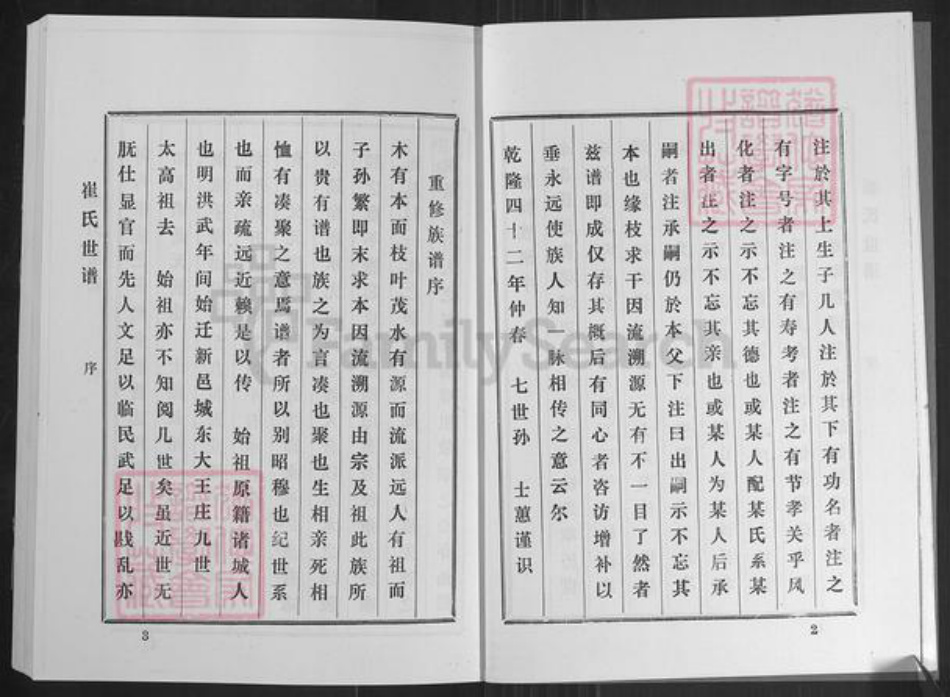 注於其上生子几人注於其下有功名者注之
有字号者注之有寿考者注之有节孝关乎风
化者注之示不忘其德也或某人配某氏系某
出者注之示不忘其亲也或某人为某人后承
嗣者注承嗣仍於本父下注曰出嗣示不忘其
本也缘枝求干因流溯源无有不一目了然者
兹谱即成仅存其概后有同心者咨访增补以
垂永远使族人知一脉相传之意云尔
乾隆四十二年仲春 七世孙 士蕙谨识
2
重修族谱序
木有本而枝叶茂水有源而流派远人有祖而
子孙繁即末求本因流溯源由宗及祖此族所
以贵有谱也族之为言凑也聚也生相亲死相
恤有凑聚之意焉谱者所以别昭穆也纪世系
也而亲疏远近赖是以传 始祖原籍诸城人
也明洪武年间始迁新邑城东大王庄九世
太高祖去 始祖亦不知阅几世矣虽近世无
朊仕显官而先人文足以临民武足以戡乱亦
崔氏世谱 序
3
FamilySearch